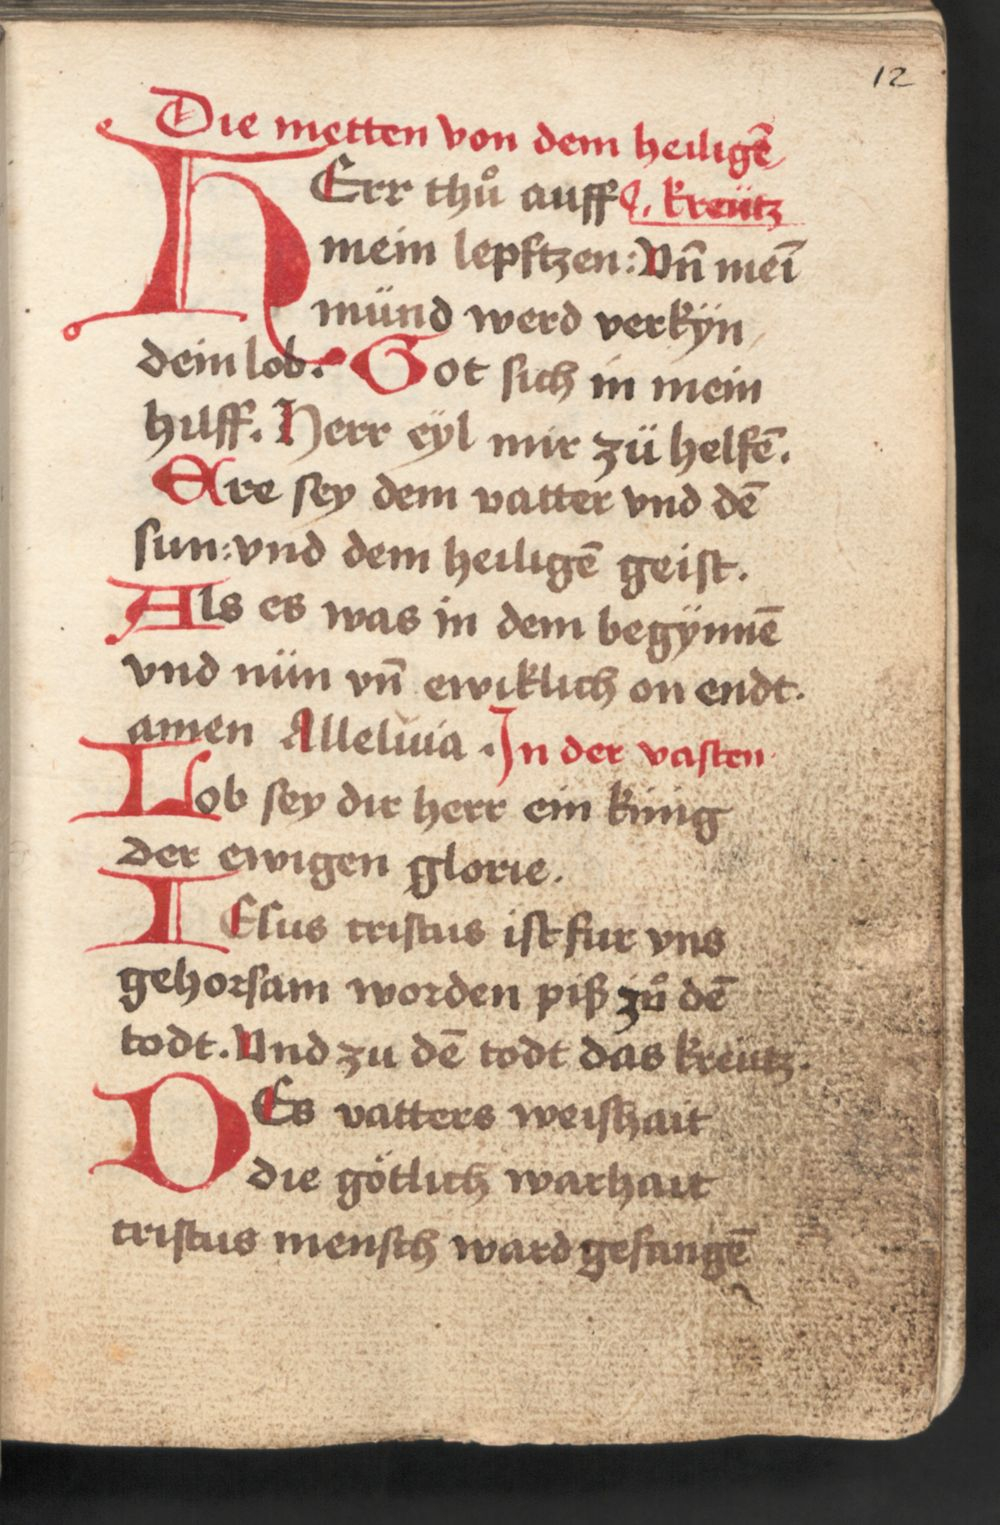 12
Die metten von dem heiligē
HErr thů auff kreütz
mein lepftzen: Vn̄ meī
münd werd verkÿn
dein lob. Got sich in mein
hilff. Herr eÿl mir zü helfē.
Ere sey dem vatter vnd dē
sun: vnd dem heiligē geist.
Als es was in dem begÿnnē
vnd nün vn̄ ewiklich on endt.
amen Alleluia. In der vasten
Lob sey dir herr ein künig
der ewigen glorie.
IEsus cristus ist fur vns
gehorsam worden piß zů dē
todt. Vnd zu dē todt das kreütz.
DEs vatters weishait
die götlich warhait
cristus mensch ward gefangē